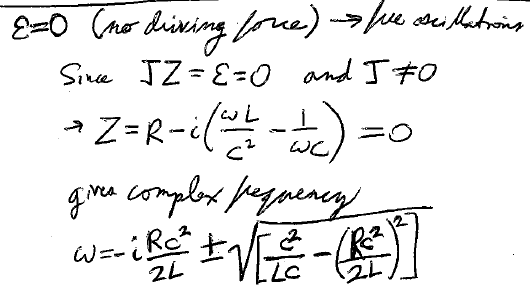 ℰ=0 (no driving force) → free oscillations
Since JZ = ℰ = 0 and J ≠ 0
→ Z = R - i(ωL/c² - 1/ωC) = 0
gives complex frequency
ω = -i Rc²/2L ± √[c²/LC - (Rc²/2L)²]